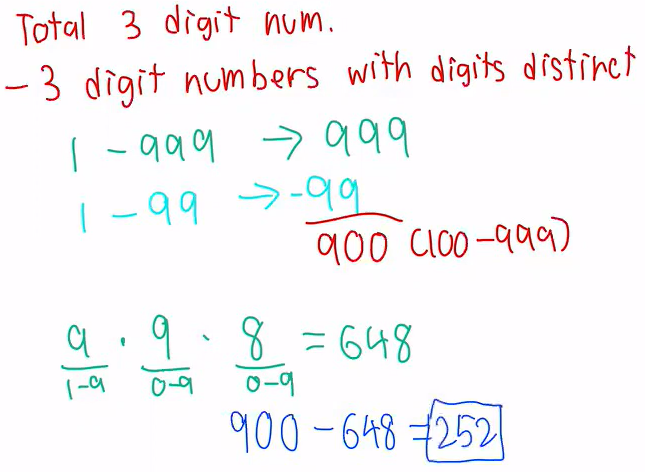 Total 3 digit num.
- 3 digit numbers with digits distinct
1 - 999 → 999
1 - 99 → -99
900 (100 - 999)
9 · 9 · 8 = 648
1-9 0-9 0-9
900 - 648 = 252